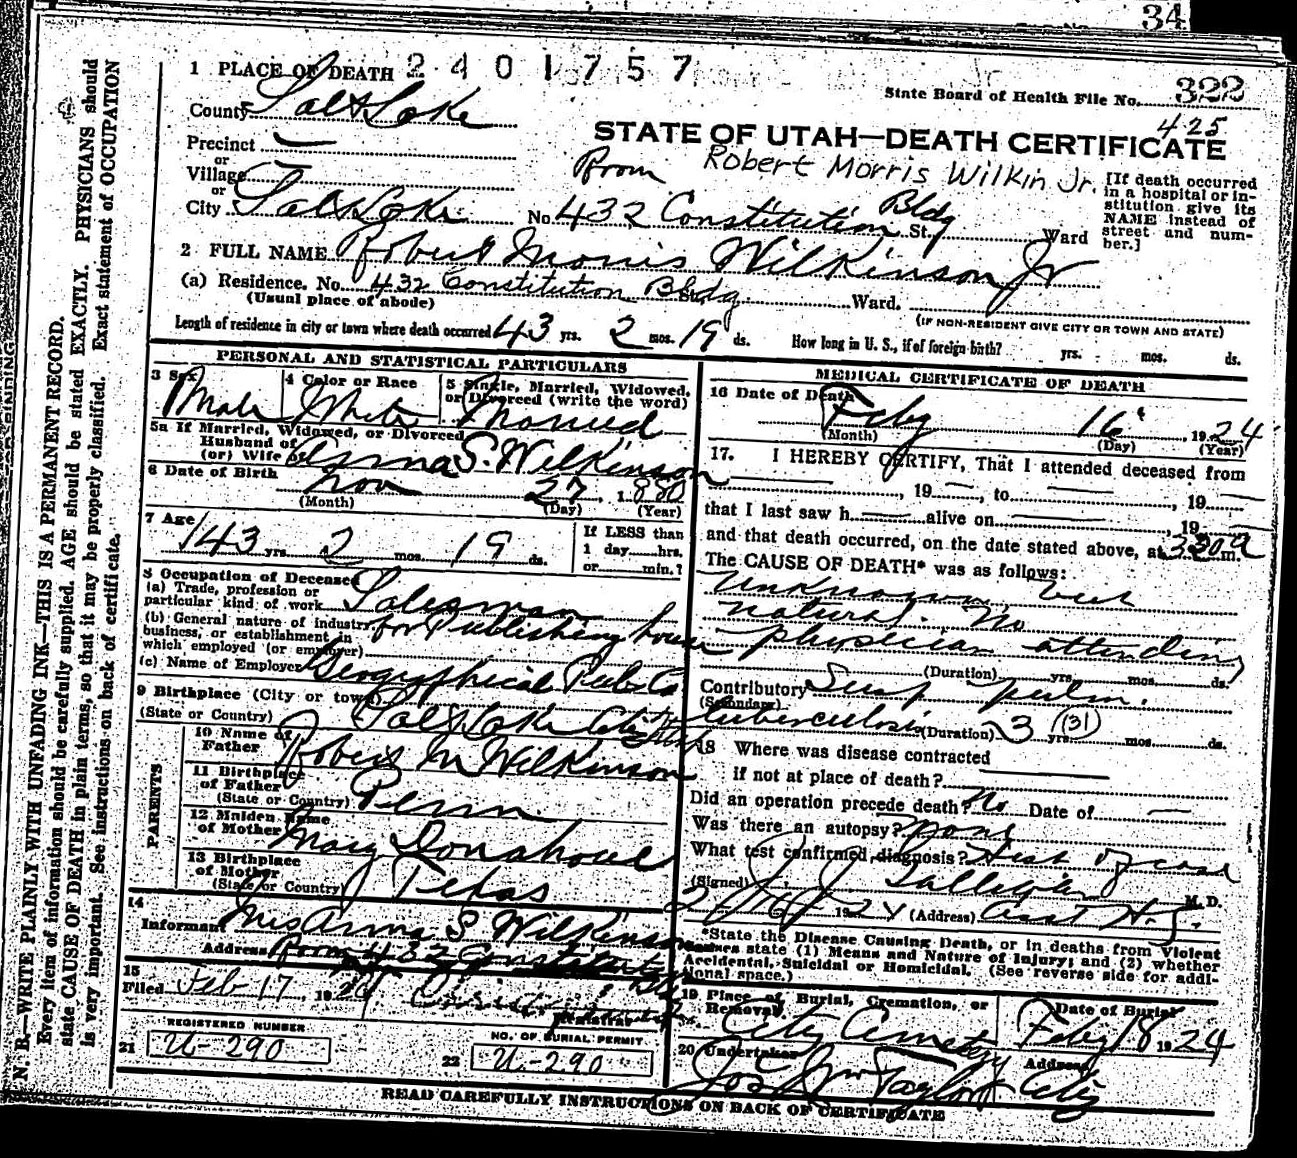 34
1 PLACE OF DEATH 2401757
State Board of Health File No. 322
County Salt Lake
425
STATE OF UTAH—DEATH CERTIFICATE
Precinct —
or
Village
or
City Salt Lake No. 432 Constitution Bldg St. Ward
Room Robert Morris Wilkin Jr.
[If death occurred
in a hospital or in-
stitution give its
NAME instead of
street and num-
ber.]
2 FULL NAME Robert Morris Wilkinson Jr
(a) Residence. No. 432 Constitution Bldg St. Ward.
(Usual place of abode)
(IF NON-RESIDENT GIVE CITY OR TOWN AND STATE)
Length of residence in city or town where death occurred 43 yrs. 2 mos. 19 ds. How long in U. S., if of foreign birth? yrs. mos. ds.
PERSONAL AND STATISTICAL PARTICULARS
3 Sex Male
4 Color or Race White
5 Single, Married, Widowed,
or Divorced (write the word) Married
5a If Married, Widowed, or Divorced
Husband of
(or) Wife of Anna S. Wilkinson
6 Date of Birth Nov 27, 1880
(Month) (Day) (Year)
7 Age 43 yrs. 2 mos. 19 ds.
If LESS than
1 day....hrs.
or....min.?
8 Occupation of Deceased
(a) Trade, profession or
particular kind of work Salesman
(b) General nature of industry
business, or establishment in
which employed (or employer) for Publishing house
(c) Name of Employer Geographical Pub. Co
9 Birthplace (City or town)
(State or Country) Salt Lake City Utah
PARENTS
10 Name of
Father Robert M Wilkinson
11 Birthplace
of Father
(State or Country) Penn.
12 Maiden Name
of Mother Mary Donahoue
13 Birthplace
of Mother
(State or Country) Texas
14
Informant Mrs Anna S Wilkinson
Address Room 432 Constitution Bldg
15
Filed Feb 17, 1924
Registrar
REGISTERED NUMBER
21 U-290
NO. OF BURIAL PERMIT
22 U-290
MEDICAL CERTIFICATE OF DEATH
16 Date of Death Feby 16 1924
(Month) (Day) (Year)
17. I HEREBY CERTIFY, That I attended deceased from
—, 19—, to —, 19—
that I last saw h— alive on —, 19—
and that death occurred, on the date stated above, at 3:20 a m.
The CAUSE OF DEATH* was as follows:
Unknown but
natural. No
physician attending
(Duration) yrs. mos. ds.
Contributory Susp pulm.
(Secondary)
tuberculosis (Duration) 3 yrs. (31) mos. ds.
18 Where was disease contracted
if not at place of death? —
Did an operation precede death? No Date of —
Was there an autopsy? none
What test confirmed diagnosis? Hist of case
(Signed) J. J. Gallegan M. D.
2/16/1924 (Address) Asst H.
*State the Disease Causing Death, or in deaths from Violent
Causes state (1) Means and Nature of Injury; and (2) whether
Accidental, Suicidal or Homicidal. (See reverse side for addi-
tional space.)
19 Place of Burial, Cremation, or
Removal City Cemetery
Date of Burial
Feby 18 1924
20 Undertaker Jos Wm Taylor
Address City
READ CAREFULLY INSTRUCTIONS ON BACK OF CERTIFICATE
N. B.—WRITE PLAINLY WITH UNFADING INK—THIS IS A PERMANENT RECORD.
Every item of information should be carefully supplied. AGE should be stated EXACTLY. PHYSICIANS should
state CAUSE OF DEATH in plain terms, so that it may be properly classified. Exact statement of OCCUPATION
is very important. See instructions on back of certificate.
BINDING